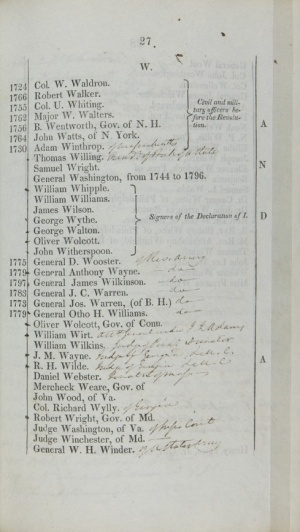 27.
W.
1724 Col. W. Waldron.
1766 Robert Walker.
1755 Col. U. Whiting.
1762 Major W. Walters.
1756 B. Wentworth, Gov. of N. H.
1764 John Watts, of N York.
Civil and mili-
tary officers be-
fore the Revolu-
tion.
1730 Adam Winthrop.
Thomas Willing.
Samuel Wright.
General Washington, from 1744 to 1796.
William Whipple.
William Williams.
James Wilson.
George Wythe.
George Walton.
Oliver Wolcott.
John Witherspoon.
Signers of the Declaration of I.
1775 General D. Wooster. of Rev. army
1779 General Anthony Wayne. do
1797 General James Wilkinson. do
1783 General J. C. Warren. do
1773 General Jos. Warren, (of B. H.) do
1779 General Otho H. Williams. do
Oliver Wolcott, Gov. of Conn.
William Wirt.
William Wilkins.
J. M. Wayne.
R. H. Wilde.
Daniel Webster.
Mercheck Weare, Gov. of
John Wood, of Va.
Col. Richard Wylly. of Georgia
Robert Wright, Gov. of Md.
Judge Washington, of Va.
Judge Winchester, of Md.
General W. H. Winder.
A
N
D
A